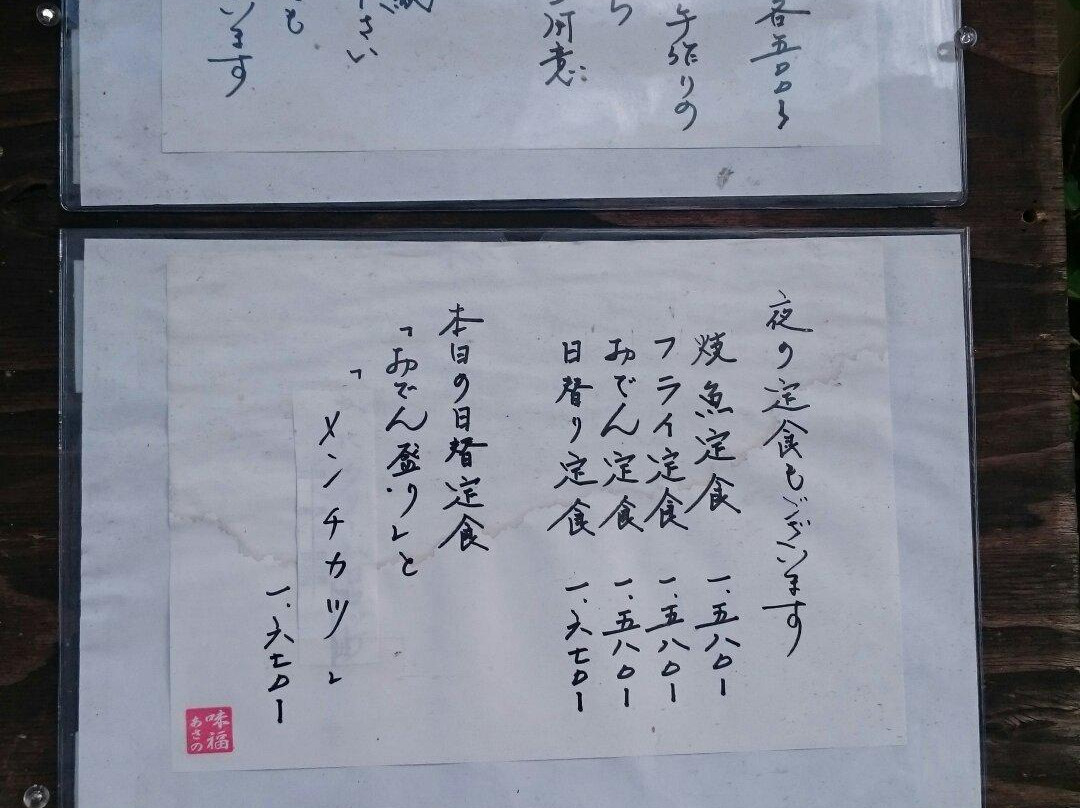 各五〇〇ー
手作りの
ら
ご用意
ださい
も
います
夜の定食もございます
焼魚定食 一.五八〇ー
フライ定食 一.五八〇ー
おでん定食 一.五八〇ー
日替り定食 一.六七〇ー
本日の日替定食
「おでん盛り」と
「メンチカツ」
一.六七〇ー
味福
あさの